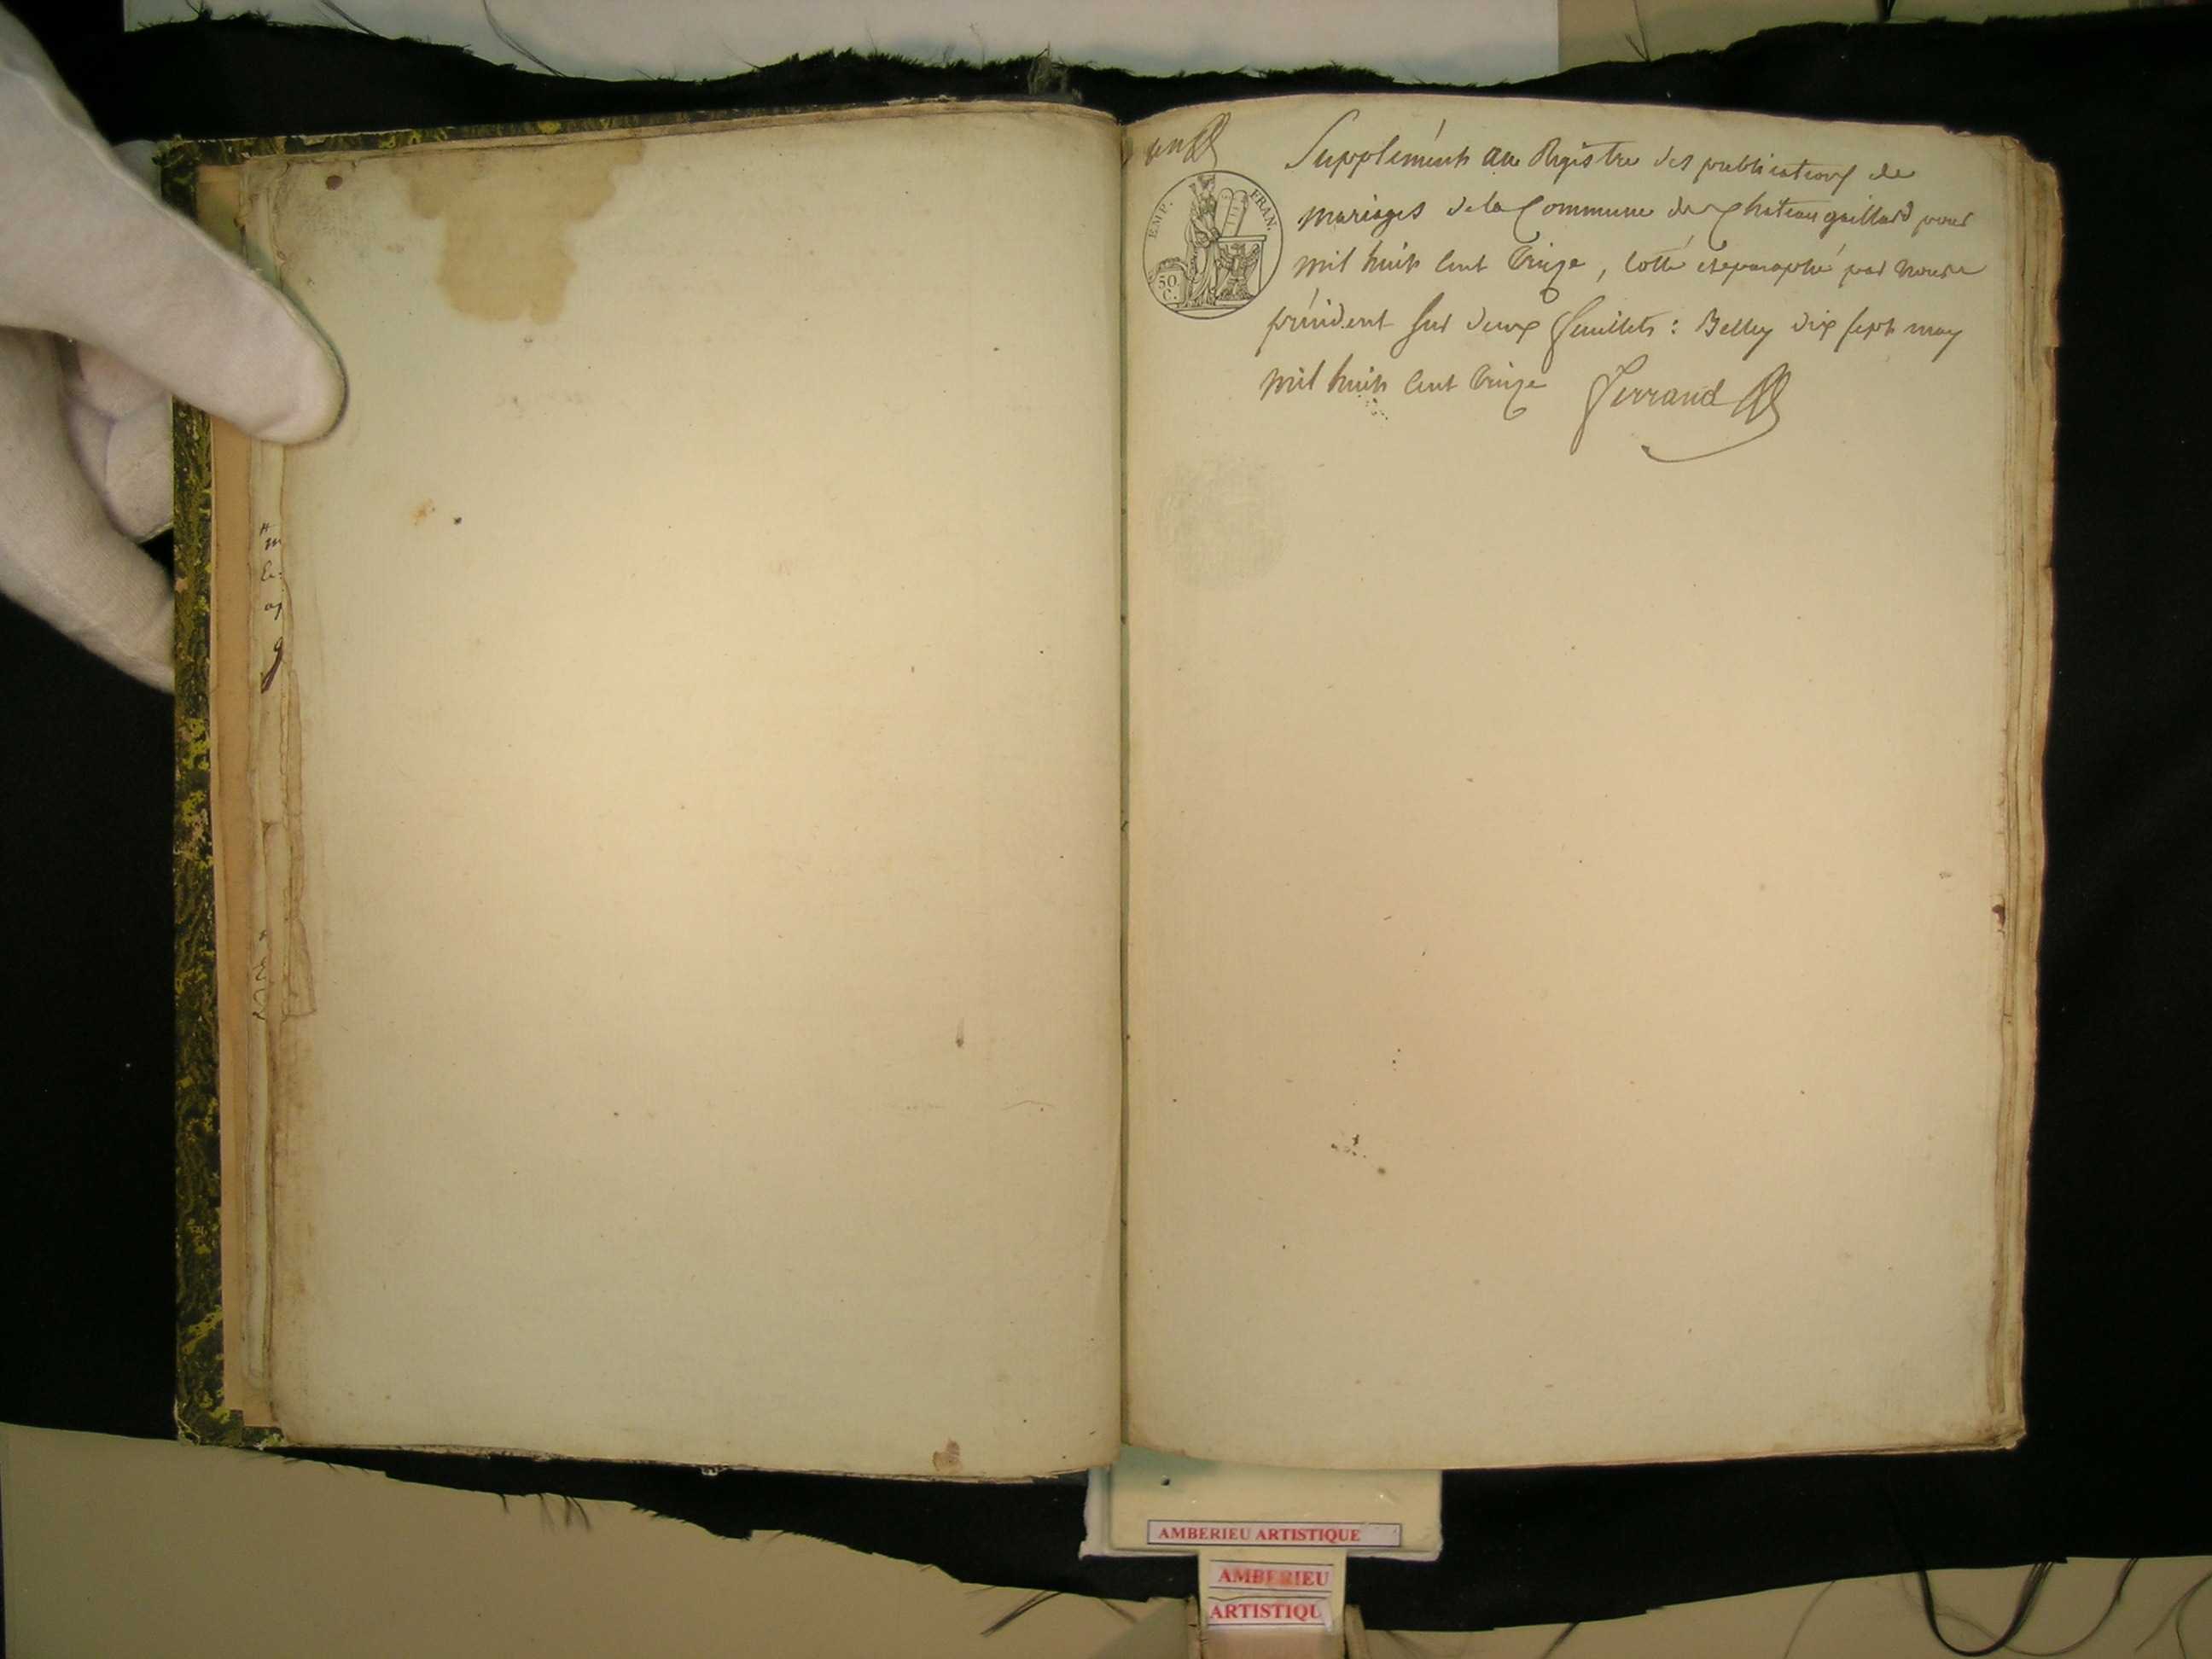 un
Supplément au Registre des publications de
mariages de la Commune de Chateaugaillard pour
mil huit cent treize, cotté et paraphé par nous
président sur deux feuillets : Belley dix sept may
mil huit cent treize Ferrand
EMP. FRAN.
50
C.
AMBERIEU ARTISTIQUE
AMBERIEU
ARTISTIQU